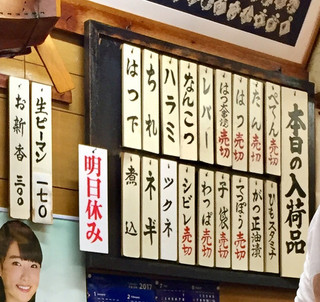 本日の入荷品
ぺてん 売切
たん 売切
はつ 売切
はつ大動脈 売切
レバー 売切
なんこつ
ハラミ
ちれ
はつ下
ひもスタミナ
がつ正油漬
てっぽう 売切
子袋 売切
わっぱ 売切
シビレ 売切
ツクネ
ネギ
煮込
明日休み
生ピーマン 一七〇
お新香 三〇〇
2017